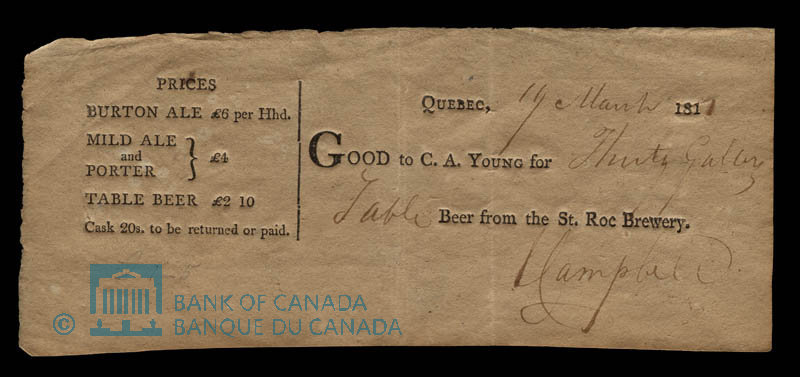 PRICES
BURTON ALE £6 per Hhd.
MILD ALE
and
PORTER
£4
TABLE BEER £2 10
Cask 20s. to be returned or paid.
QUEBEC, 19 March 181
GOOD to C. A. YOUNG for Thirty Gallons
Table Beer from the St. Roc Brewery.
Campbell
© BANK OF CANADA
BANQUE DU CANADA